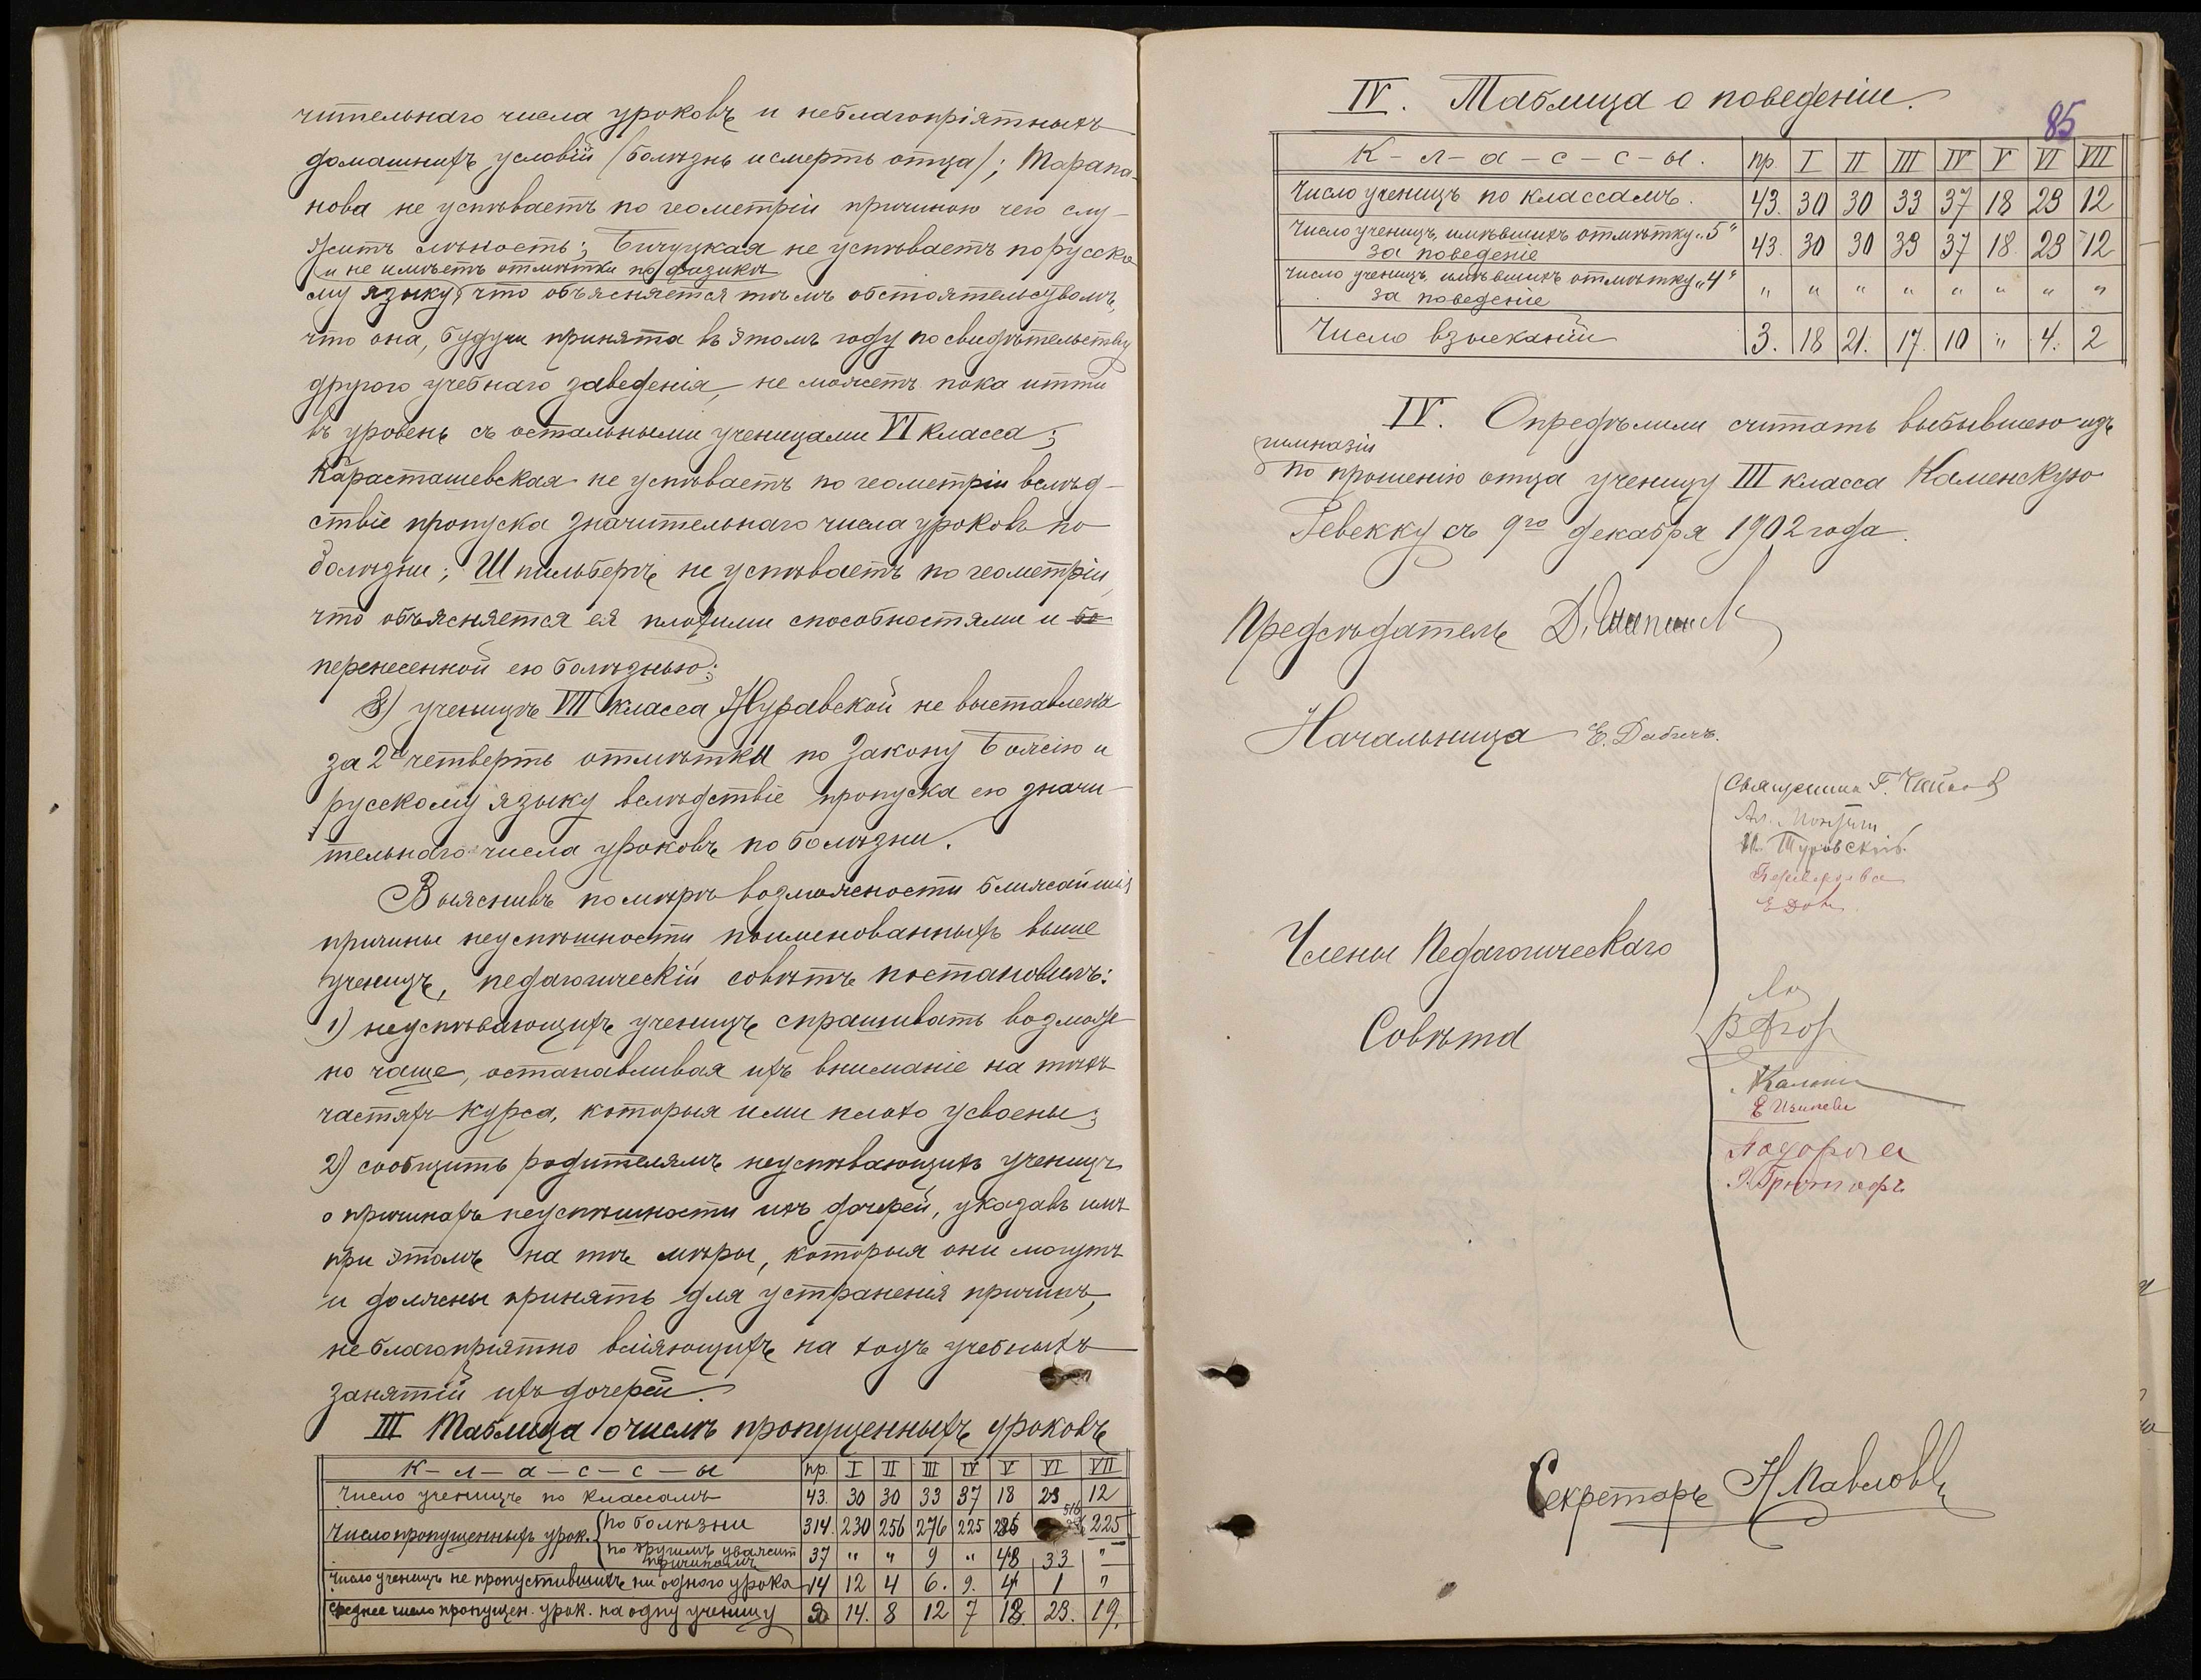 чительнаго числа уроковъ и неблагопріятныхъ
домашнихъ условій (болѣзнь и смерть отца); Тарапа-
нова не успѣваетъ по геометріи причиною чего слу-
житъ лѣность; Бичуцкая не успѣваетъ по русско
и не имѣетъ отмѣтки по физикѣ
му языку, что объясняется тѣмъ обстоятельствомъ,
что она, будучи принята въ этомъ году по свидѣтельству
другого учебнаго заведенія, не можетъ пока итти
въ уровень съ остальными ученицами VI класса;
Карасташевская не успѣваетъ по геометріи вслѣд-
ствіе пропуска значительнаго числа уроковъ по
болѣзни; Шпильбергъ не успѣваетъ по геометріи,
что объясняется ея плохими способностями и бо
перенесенной ею болѣзнью;
8) ученицѣ VII класса Журавской не выставлены
за 2ю четверть отмѣтки по Закону Божію и
русскому языку вслѣдствіе пропуска ею значи-
тельнаго числа уроковъ по болѣзни.
Выяснивъ по мѣрѣ возможности ближайшія
причины неуспѣшности поименованныхъ выше
ученицъ, педагогическій совѣтъ постановилъ:
1) неуспѣвающихъ ученицъ спрашивать возмож
но чаще, останавливая ихъ вниманіе на тѣхъ
частяхъ курса, которыя ими плохо усвоены;
2) сообщить родителямъ неуспѣвающихъ ученицъ
о причинахъ неуспѣшности ихъ дочерей, указавъ имъ
при этомъ на тѣ мѣры, которыя они могутъ
и должны принять для устраненія причинъ,
неблагопріятно вліяющихъ на ходъ учебныхъ
занятій ихъ дочерей.
III Таблица о числѣ пропущенныхъ уроковъ
К-л-а-с-с-ы пр. I II III IV V VI VII
Число ученицъ по классамъ 43. 30 30 33 37 18 23 12
Число пропущенныхъ урок. по болѣзни 314. 230 256 276 225 225
по другимъ уважит. причинамъ 37 " " 9 " 48 33 "
Число ученицъ не пропустившихъ ни одного урока 14 12 4 6. 9. 4 1 "
Среднее число пропущен. урок. на одну ученицу 14. 8 12 7 18. 23. 19.
85
IV. Таблица о поведеніи.
К-л-а-с-с-ы. пр. I II III IV V VI VII
Число ученицъ по классамъ. 43. 30 30 33 37 18 23 12
Число ученицъ, имѣвшихъ отмѣтку „5" за поведеніе 43. 30 30 33 37 18. 23 12
Число ученицъ, имѣвшихъ отмѣтку „4" за поведеніе " " " " " " " "
Число взысканій 3. 18 21. 17. 10 " 4. 2
IV. Опредѣлили считать выбывшею изъ
гимназіи
по прошенію отца ученицу III класса Каменскую
Ревекку съ 9го декабря 1902 года.
Предсѣдатель Д.
Начальница Е. Дабичъ.
Священникъ Г.
Туровскій.
Члены Педагогическаго
Совѣта
Секретарь Н. Павловъ